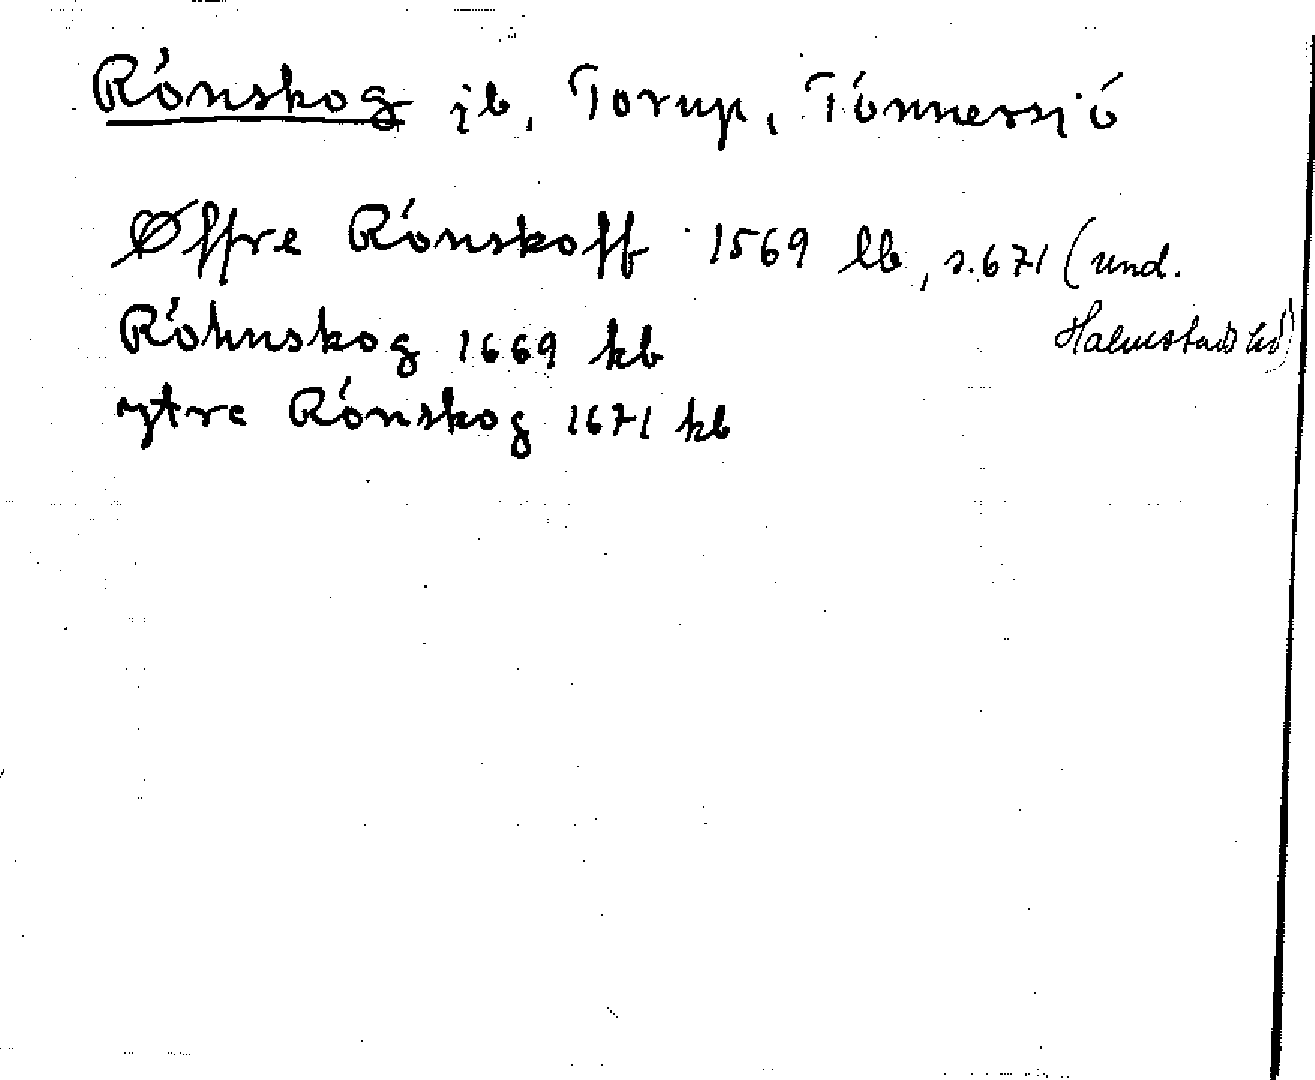 Rónskog jb, Torup, Tónnersjó
Øffre Rónskoff 1569 lb, s.671 (und.
Halmstad
Róhnskog 1669 kb
ytre Rónskog 1671 kb